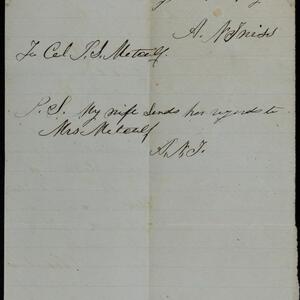 A. N. Tniss
To Col T. S. Metcalf.
P. S. My wife sends her regards to
Mrs Metcalf
A. N. T.